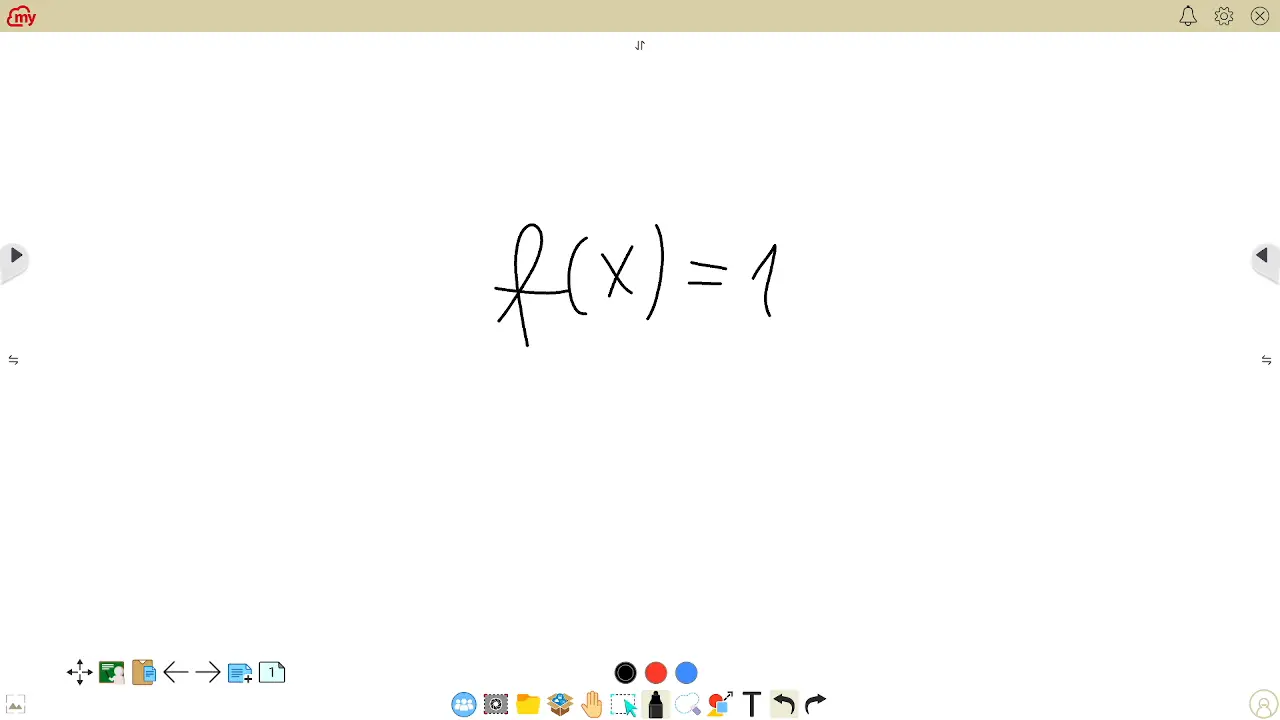 my
f(x)=1
1
T